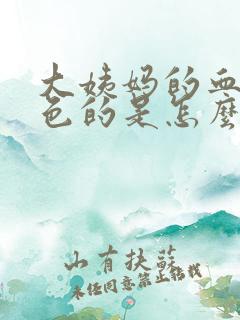 大姨妈的血
色的是怎麽
山有扶蘇
未经同意禁止转载